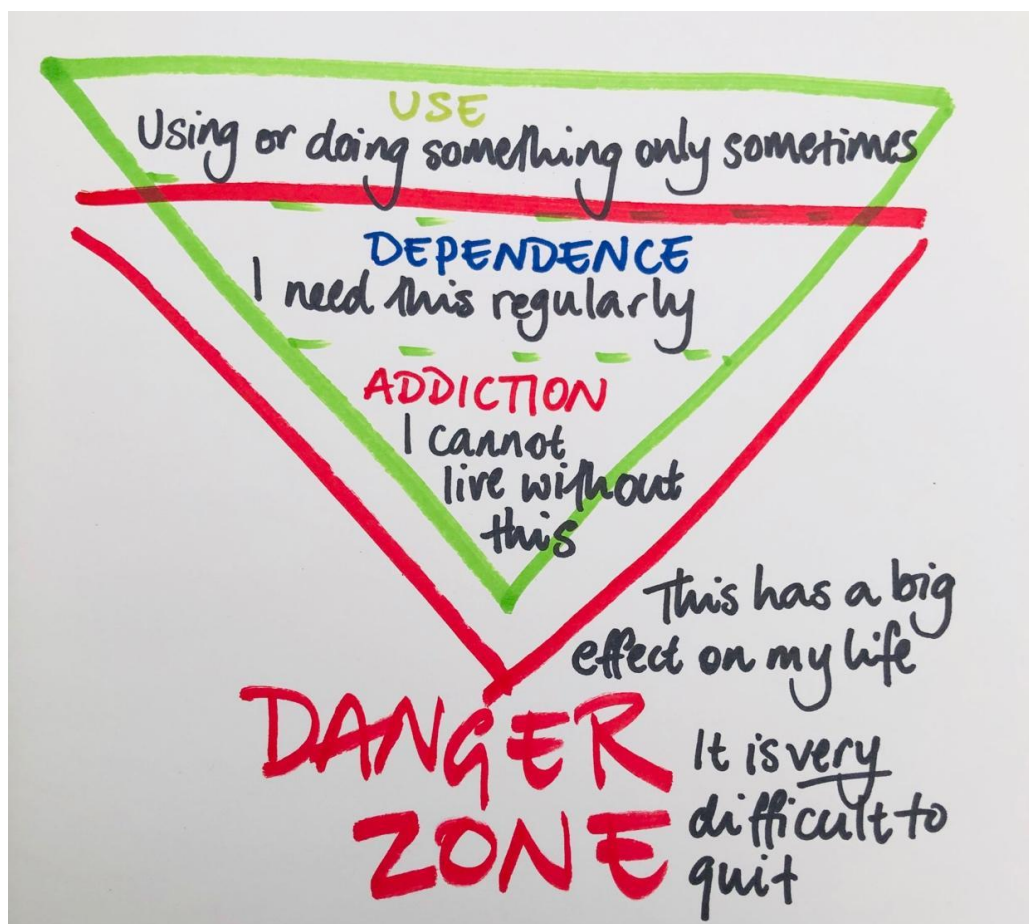 USE
Using or doing something only sometimes
DEPENDENCE
I need this regularly
ADDICTION
I cannot
live without
this
This has a big
effect on my life
DANGER
ZONE
It is very
difficult to
quit